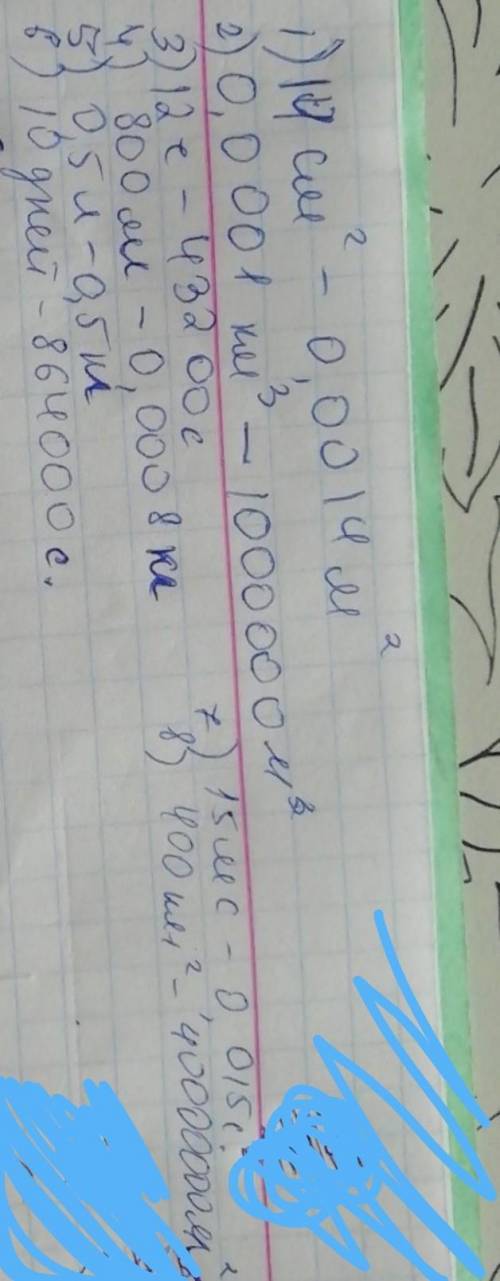 1) 14 см² - 0,0014 м²
2) 0,0001 км³ - 1000000 м³
3) 12 ч - 43200с
4) 800 мл - 0,0008 кл
5) 0,5 л - 0,5 кл
6) 10 дней - 864000 с.
7) 15мс - 0,015с.
8) 400 км² - 400000000м²